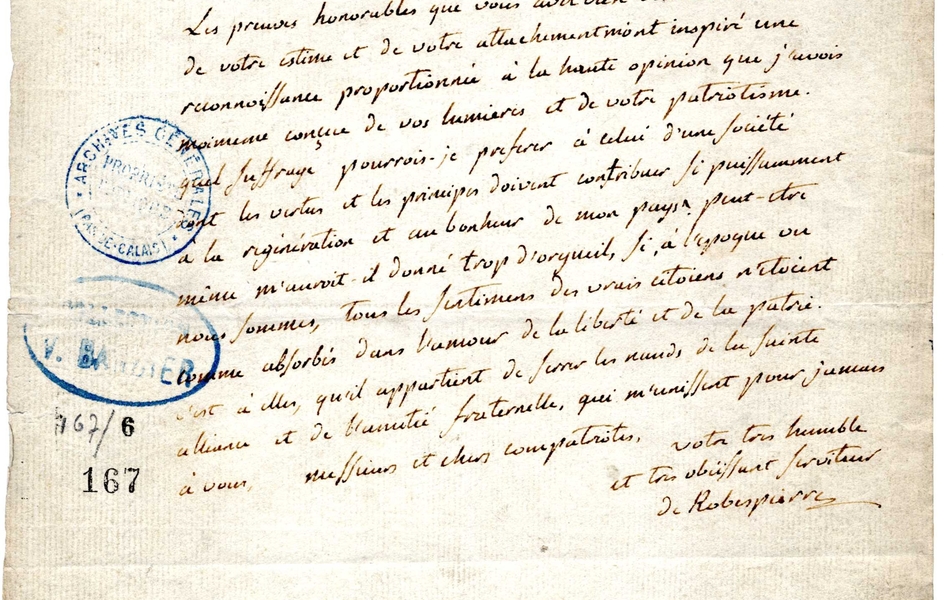 Les preuves honorables que vous
de votre estime et de votre attachement m'ont inspiré une
reconnoissance proportionnée à la haute opinion que j'avois
moimeme conçue de vos lumieres et de votre patriotisme.
quel suffrage pourrois-je preferer à celui d'une société
dont les vertus et les principes doivent contribuer si puissamment
à la régénération et au bonheur de mon pays? peut-etre
même m'auroit-il donné trop d'orgueil, si, à l'époque ou
nous sommes, tous les sentimens des vrais citoiens n'étoient
comme absorbés dans l'amour de la liberté et de la patrie.
c'est à elles, qu'il appartient de serrer les nœuds de la sainte
alliance et de l'amitié fraternelle, qui m'unissent pour jamais
à vous, messieurs et chers compatriotes,
votre tres humble
et tres obéissant serviteur
de Robespierre
ARCHIVES GENERALES
(PAS-DE-CALAIS)
V. BARBIER
167/6
167